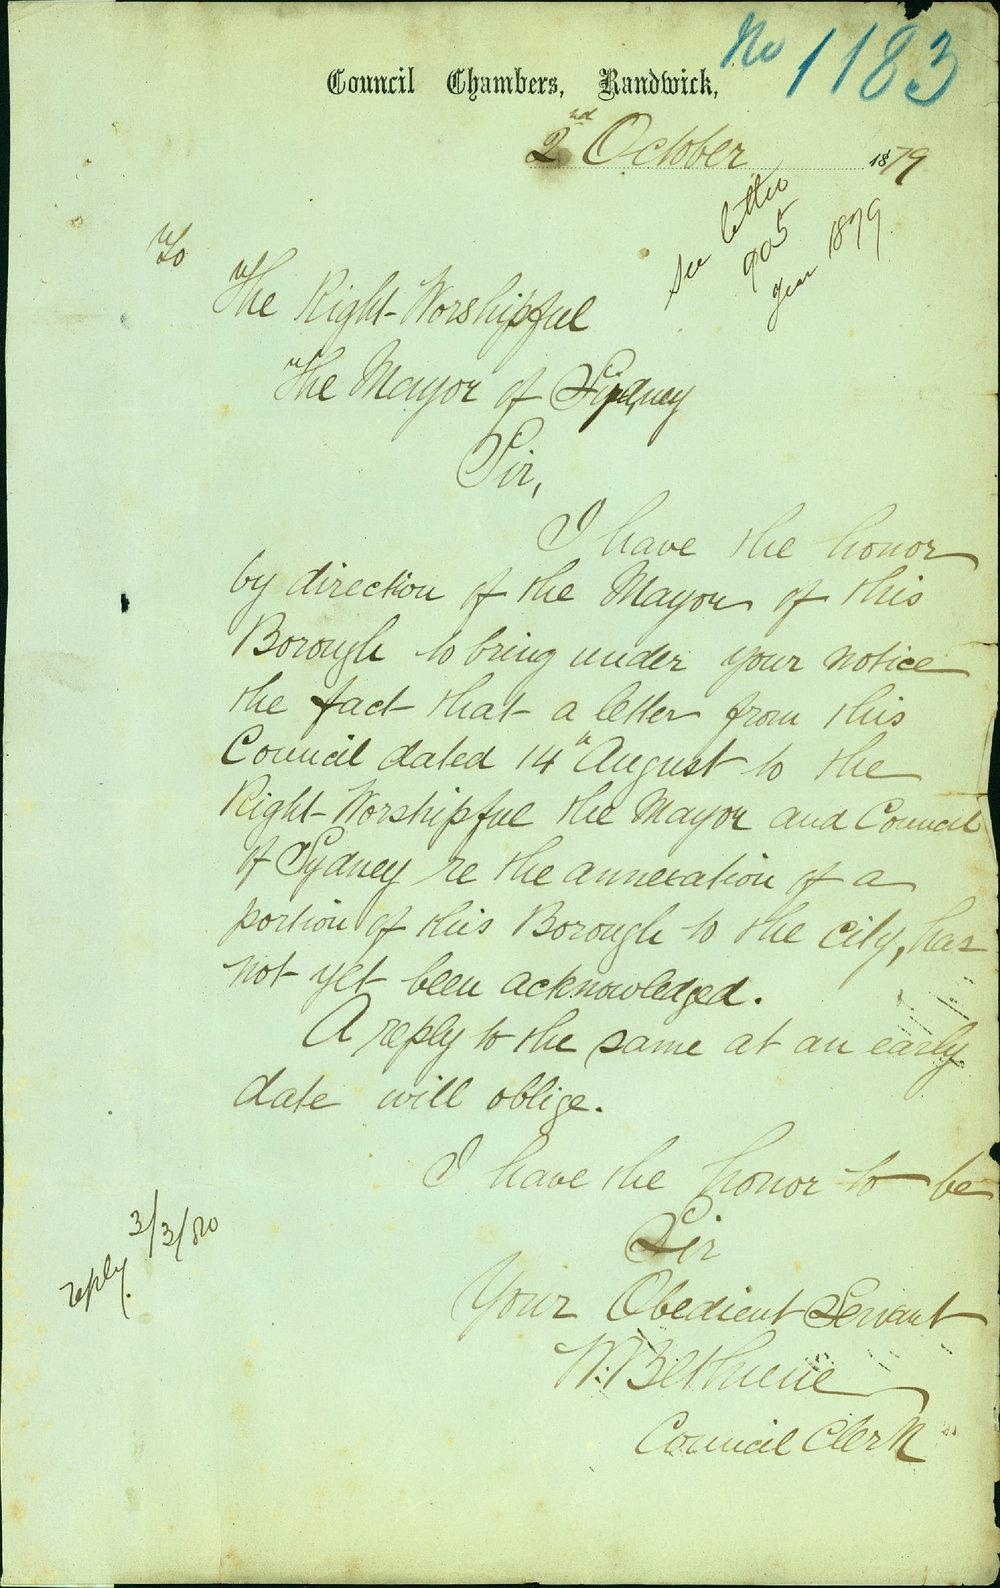 No 1183
Council Chambers, Randwick,
2nd October 1879
See letter
905
year 1879
To
The Right Worshipful
The Mayor of Sydney
Sir,
I have the honor
by direction of the Mayor of this
Borough to bring under your notice
the fact that a letter from this
Council dated 14th August to the
Right Worshipful the Mayor and Council
of Sydney re the annexation of a
portion of this Borough to the city, has
not yet been acknowledged.
A reply to the same at an early
date will oblige.
I have the honor to be
Sir
Your Obedient Servant
W. Bethune
Council Clerk
reply. 3/3/80